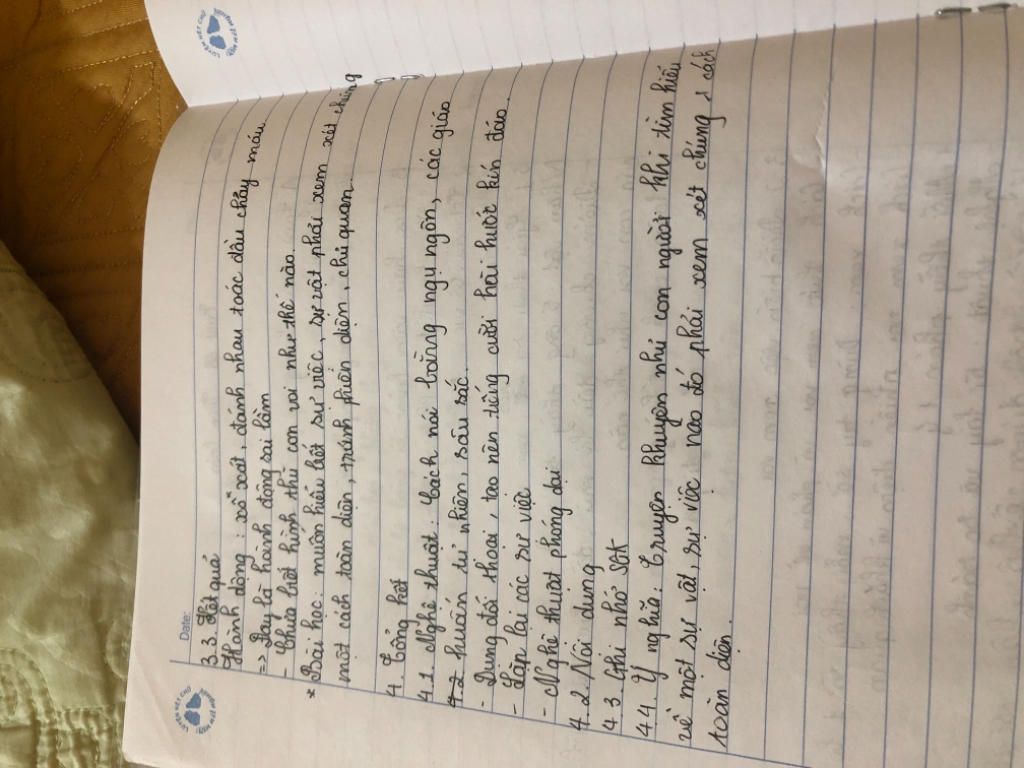 Date:
3.3. Kết quả
Hành động : xô xát, đánh nhau toác đầu chảy máu.
=> Đây là hành động sai lầm
- Chưa biết hình thù con voi như thế nào.
* Bài học: muốn hiểu biết sự việc, sự vật phải xem xét chúng
một cách toàn diện, tránh phiến diện, chủ quan.
4. Tổng kết
4.1. Nghệ thuật: Cách nói bằng ngụ ngôn, các giáo
huấn tự nhiên, sâu sắc.
- Dùng đối thoại, tạo nên tiếng cười hài hước kín đáo.
- Lặp lại các sự việc
- Nghệ thuật phóng đại
4.2. Nội dung
4.3. Ghi nhớ SGK
4.4. Ý nghĩa: Truyện khuyên nhủ con người khi tìm hiểu
về một sự vật, sự việc nào đó phải xem xét chúng 1 cách
toàn diện.